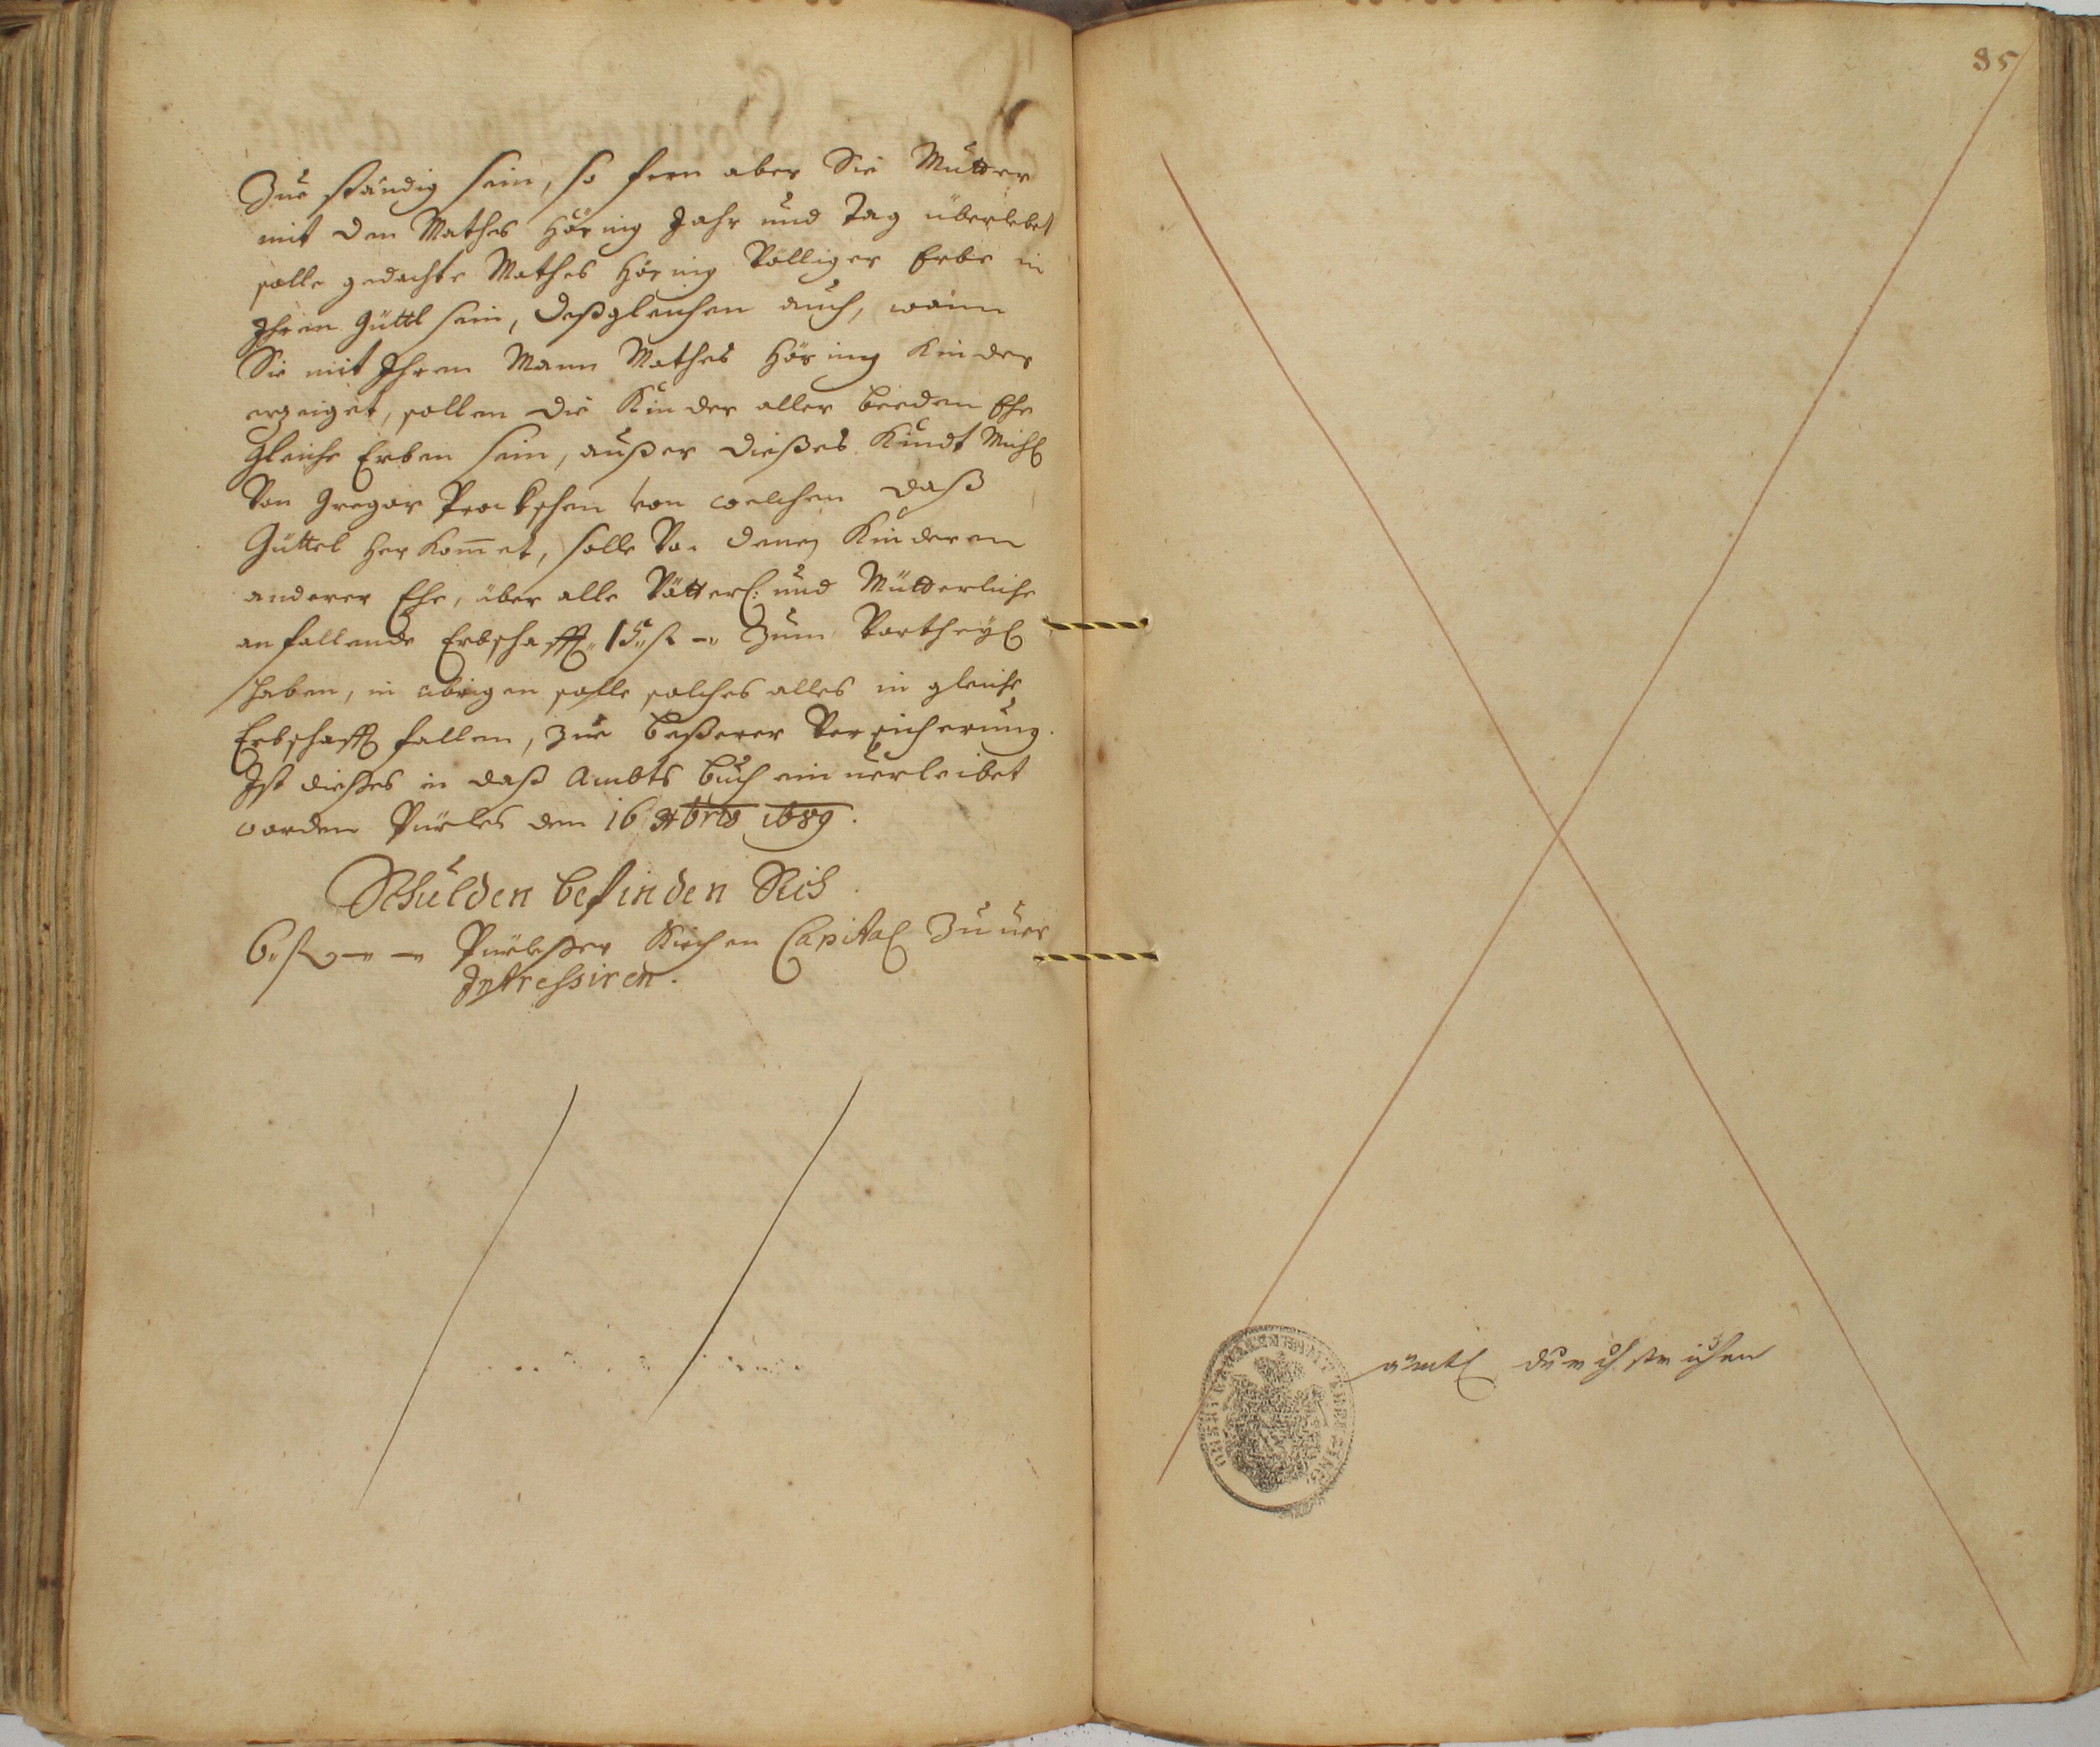 85
Zue ständig sein, so fern aber Sie Mutter
mit den Mathes Häring Jahr und Tag überlebet
solle gedachte Mathes Häring Völliger Erbe in
Ihren Güttl sein, deßgleichen auch, wann
Sie mit Ihren Mann Mathes Häring Kinder
erzeiget, sollen die Kinder aller beeden Ehe
gleiche Erben sein, außer dießes Kindt Michl
Von Gregor Prockschen von welchen daß
Güttel her kommet, solle Vor denen Kinderen
anderer Ehe, über alle Vätterl: und Mütterliche
anfallende Erbschafft 15 f - Zum Vortheyl
haben, in übrigen solle solches alles in gleiche
Erbschafft fallen, zue beßerer Versicherung.
Ist dießes in daß Ambts buch ein uerleibet
worden Pürles den 16 9bris 1689.
Schulden befinden Sich
6 f - - Pürleßer Kirchen Capital Zu uer
Intressiren.
ämtl durchstrichen